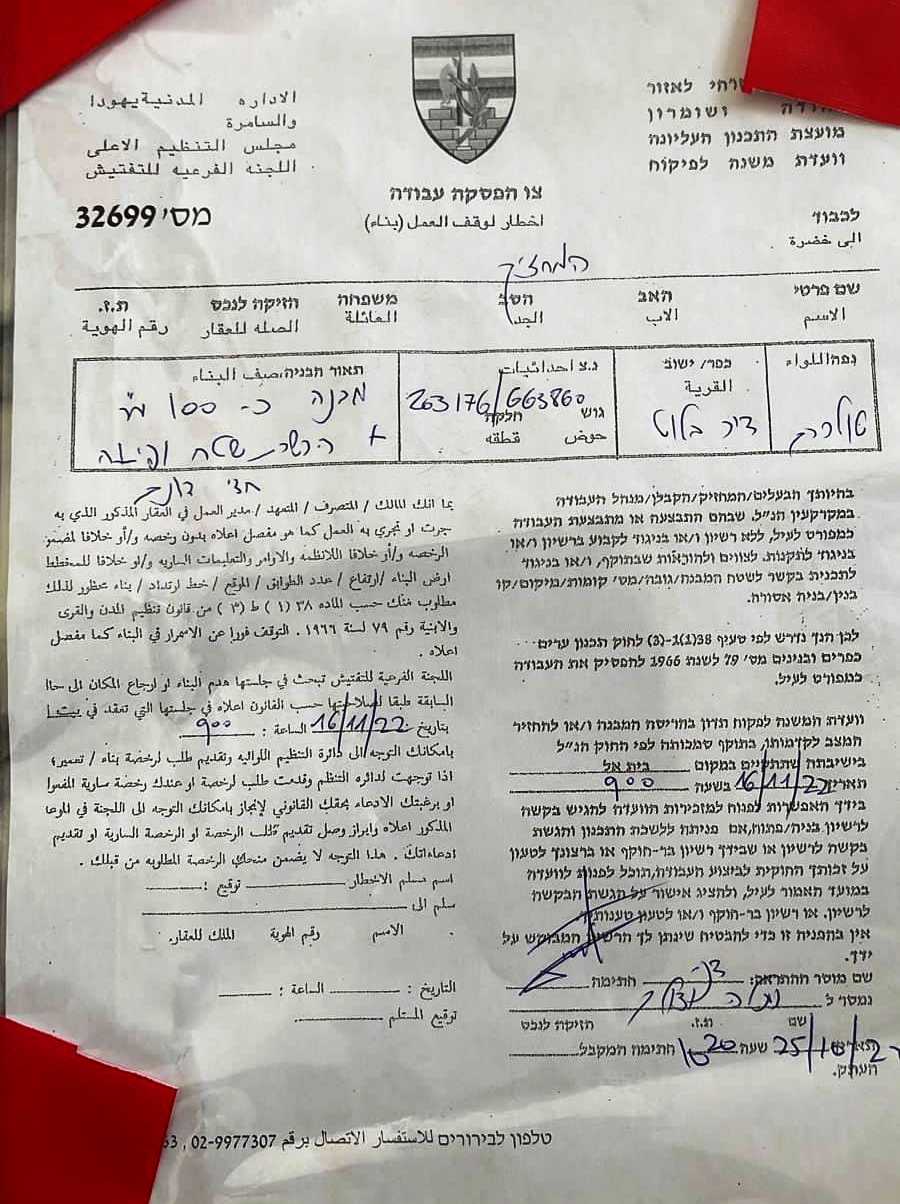 الاداره المدنية يهودا
والسامرة
مجلس التنظيم الاعلى
اللجنه الفرعيه للتفتيش
לאזור
ושומרון
מועצת התכנון העליונה
וועדת משנה לפיקוח
צו הפסקה עבודה
اخطار لوقف العمل (بناء)
מס' 32699
לכבוד
الى خضرة
המחזיק
שם פרטי האב הסב משפחה חזיקה לנכס ת.ז.
الاسم الاب الجد العائلة الصله للعقار رقم الهوية
נפה اللواء
טולכרם
כפר/ ישוב
القرية
דיר בלוט
נ.צ احداثيات
203176/663860
גוש חלקה
حوض قطعه
תאור הבניה, صف البناء
מבנה כ- 100 מ"ר
הכשרת שטח
בהיותך הבעלים/המחזיק/הקבלן/מנהל העבודה
במקרקעין הנ"ל, שבהם התבצעה או מתבצעת העבודה
כמפורט לעיל, ללא רשיון ו/או בניגוד לקבוע ברשיון ו/או
בניגוד לתקנות, לצווים ולהוראות שבתוקף, ו/או בניגוד
לתכנית בקשר לשטח המבנה/גובה/מס' קומות/מיקום/קו
בנין/בניה אסורה.
לכן הנך נדרש לפי סעיף 38(1)(ג-3) לחוק תכנון ערים
כפרים ובנינים מס' 79 לשנת 1966 להפסיק את העבודה
כמפורט לעיל.
וועדת המשנה לפקוח תדון בהריסת המבנה ו/או להחזיר
המצב לקדמותו, בתוקף סמכותה לפי החוק הנ"ל
בישיבתה שתתקיים במקום בית אל
תאריך 16/11/22 בשעה 900
בידך האפשרות לפנות למזכירות הוועדה להגיש בקשה
לרשיון בניה/פתוח, אם פניתה ללשכת התכנון והגשת
בקשה לרשיון או שבידך רשיון בר-תוקף או ברצונך לטעון
על זכותך החוקית לביצוע העבודה, תוכל לפנות לוועדה
במועד האמור לעיל, ולהציג אישור על הגשת הבקשה
לרשיון, או רשיון בר-תוקף ו/או לטעון טענותיך.
אין בהפניה זו כדי להבטיח שינתן לך הרשיון המבוקש על
ידך.
שם מוסר ההתראה: חתימה
נמסר ל
שם ת.ז. חזיקה לנכס
25/10/22 שעה חתימה המקבל
העתק.
بما انك المالك / المتصرف / المتعهد / مدير العمل في العقار المذكور الذي به
جرت او تجري به العمل كما هو مفصل اعلاه بدون رخصه و/أو خلافا لمضمون
الرخصه و/أو خلافا للانظمه والاوامر والتعليمات الساريه و/او خلافا للمخطط
ارض البناء /ارتفاع / عدد الطوابق / الموقع / خط ارتداد / بناء محظور لذلك
مطلوب منك حسب الماده ٣٨ (١) ط (٣) من قانون تنظيم المدن والقرى
والابنية رقم ٧٩ لسنة ١٩٦٦. التوقف فورا عن الاسمرار في البناء كما مفصل
اعلاه.
اللجنة الفرعية للتفتيش تبحث في جلستها هدم البناء او ارجاع المكان الى
السابقة طبقا لصلاحيتها حسب القانون اعلاه في جلستها التي تعقد في
بتاريخ 16/11/22 الساعة: 900
بامكانك التوجه الى دائرة التنظيم اللوائيه وتقديم طلب لرخصة بناء / تعمير؛
اذا توجهت لدائره التنظم وقدمت طلب لرخصة او عندك رخصة سارية المفعول
او برغبتك الادعاء بحقك القانوني لانجاز بامكانك التوجه الى اللجنة في الموعد
المذكور اعلاه وابراز وصل تقديم طلب الرخصة او الرخصة السارية او تقديم
ادعاءاتك. هذا التوجه لا يضمن منحك الرخصة المطلوبه من قبلك.
اسم مسلم الاخطار توقيع:
سلم الى
الاسم رقم الهوية المالك للعقار.
التاريخ: الساعة:
توقيع المستلم
טלפון לבירורים للاستفسار الاتصال برقم 02-9977307